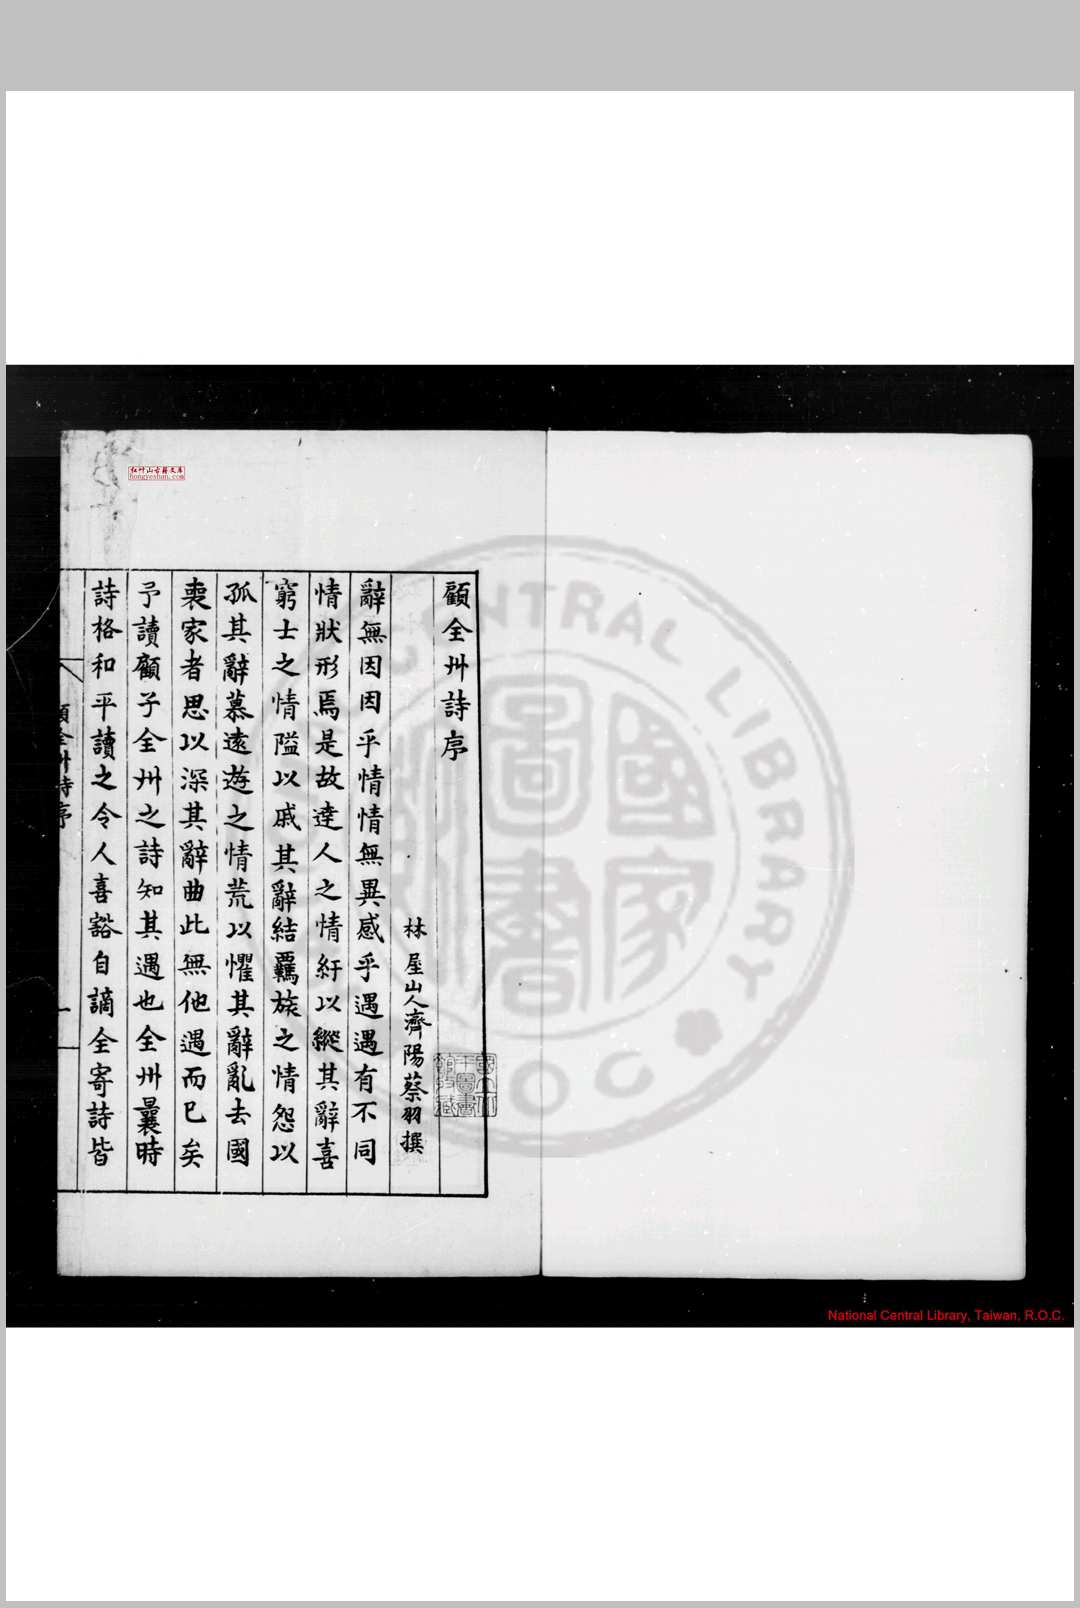 顧全州詩序
林屋山人濟陽蔡羽撰
辭無因因乎情情無異感乎遇遇有不同
情狀形焉是故達人之情紆以縱其辭喜
窮士之情隘以戚其辭結羈旅之情怨以
孤其辭慕遠遊之情荒以懼其辭亂去國
喪家者思以深其辭曲此無他遇而已矣
予讀顧子全州之詩知其遇也全州曩時
詩格和平讀之令人喜豁自謫全寄詩皆
顧全州詩序
一
紅叶山古籍文庫
hongyeshan.com
CENTRAL LIBRARY
國家圖書
R.O.C.
National Central Library, Taiwan, R.O.C.